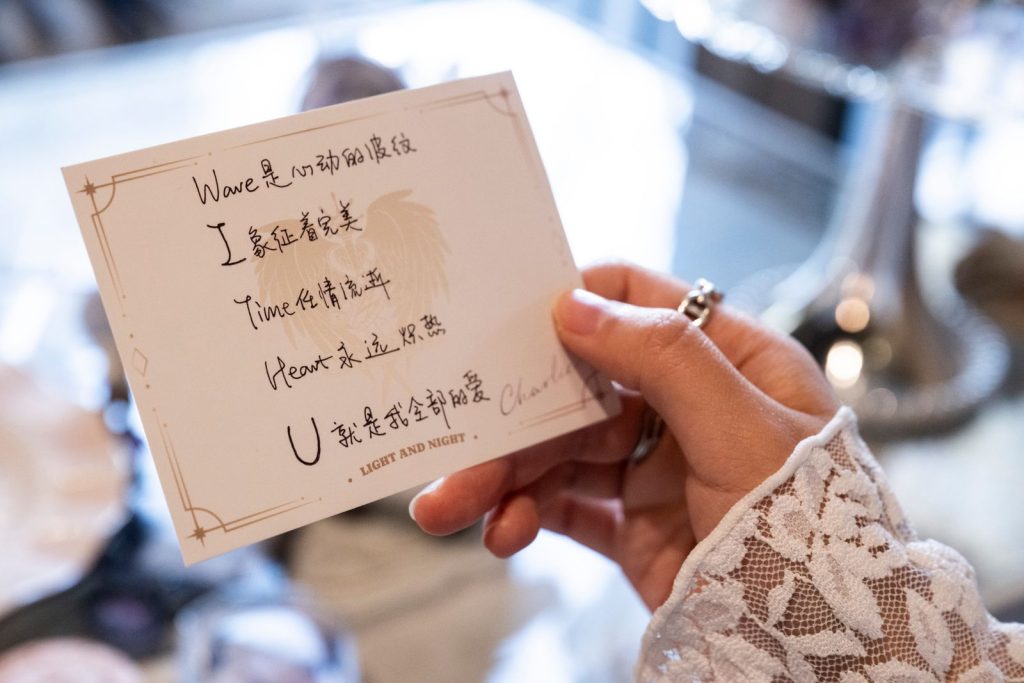 Wave是心动的波纹
I 象征着完美
Time任情流逝
Heart永远炽热
U 就是我全部的爱
Charlie
LIGHT AND NIGHT